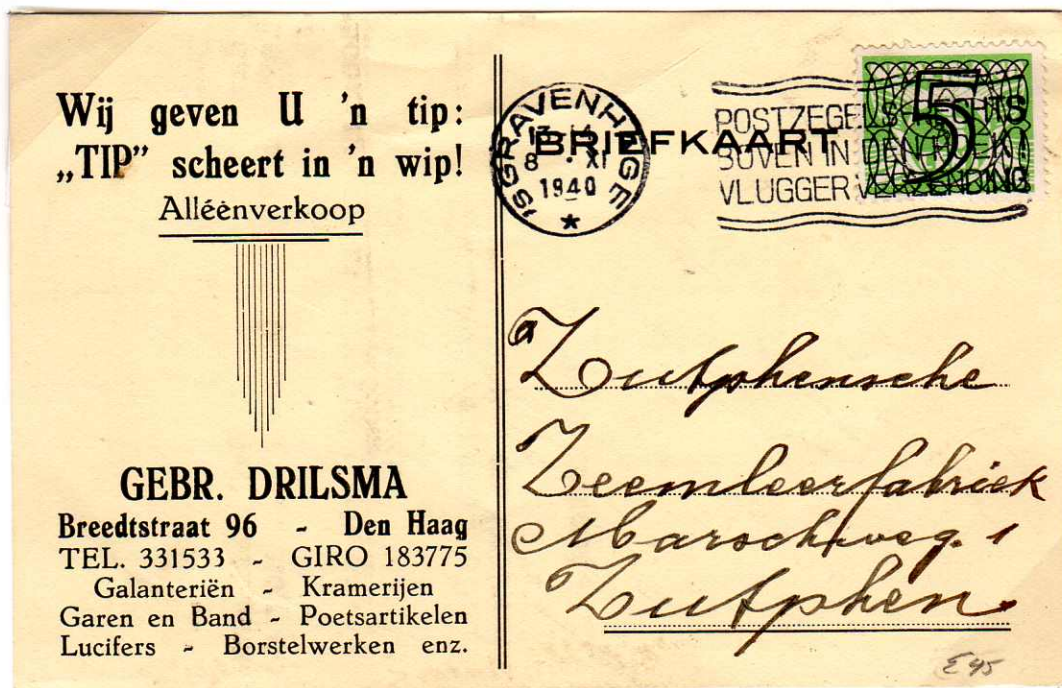 Wij geven U 'n tip:
„TIP” scheert in 'n wip!
Alléénverkoop
GEBR. DRILSMA
Breedtstraat 96 - Den Haag
TEL. 331533 - GIRO 183775
Galanteriën - Kramerijen
Garen en Band - Poetsartikelen
Lucifers - Borstelwerken enz.
BRIEFKAART
'SGRAVENHAGE
8 · XI
1940
POSTZEGELS RECHTS
BOVEN IN DEN HOEK
VLUGGER VERZENDING
5
Zutphensche
Zeemleerfabriek
Marschweg. 1
Zutphen.
E 45